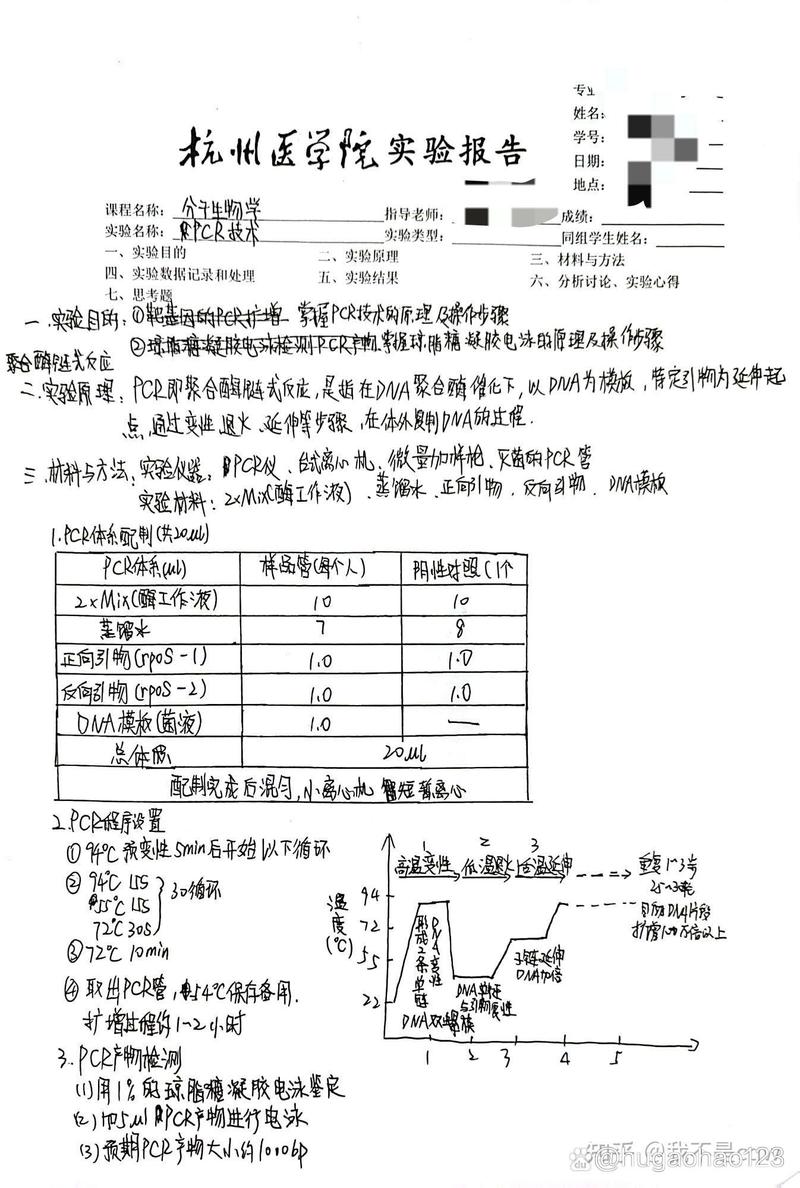 专业
姓名:
学号:
日期:
地点:
杭州医学院实验报告
课程名称: 分子生物学 指导老师: 成绩:
实验名称: PCR技术 实验类型: 同组学生姓名:
一、实验目的 二、实验原理 三、材料与方法
四、实验数据记录和处理 五、实验结果 六、分析讨论、实验心得
七、思考题
一.实验目的: ①靶基因的PCR扩增 掌握PCR技术的原理及操作步骤
②琼脂糖凝胶电泳检测PCR产物 掌握琼脂糖凝胶电泳的原理及操作步骤
聚合酶链式反应
二.实验原理: PCR即聚合酶链式反应,是指在DNA聚合酶催化下,以DNA为模版,特定引物为延伸起
点,通过变性、退火、延伸等步骤,在体外复制DNA的过程.
三.材料与方法: 实验仪器: PCR仪、台式离心机、微量加样枪、灭菌的PCR管
实验材料: 2×Mix(酶工作液)、蒸馏水、正向引物、反向引物、DNA模板
1.PCR体系配制(共20ul)
PCR体系(ul) 样品管(每个人) 阴性对照(1个
2×Mix(酶工作液) 10 10
蒸馏水 7 8
正向引物(rpoS-1) 1.0 1.0
反向引物(rpoS-2) 1.0 1.0
DNA模板(菌液) 1.0 —
总体系 20ul
配制完成后混匀,小离心机 短暂离心
2.PCR程序设置
① 94℃ 预变性5min后开始以下循环
② 94℃ 15s
55℃ 15s
72℃ 30s
30循环
③ 72℃ 10min
④ 取出PCR管, 4℃保存备用.
扩增过程约1~2小时
温度(℃)
94
72
55
22
1 2 3
高温变性 低温退火 适温延伸
重复1~3步
25~30轮
目的DNA片段
扩增100万倍以上
DNA变性
形成2条单链
DNA双螺旋
DNA单链
与引物复性
子链延伸
DNA加倍
1 2 3 4 5
3.PCR产物检测
(1)用1%的琼脂糖凝胶电泳鉴定
(2)加5ul PCR产物进行电泳
(3)预期PCR产物大小约1000bp
知乎 @我不是
@hugaohao123